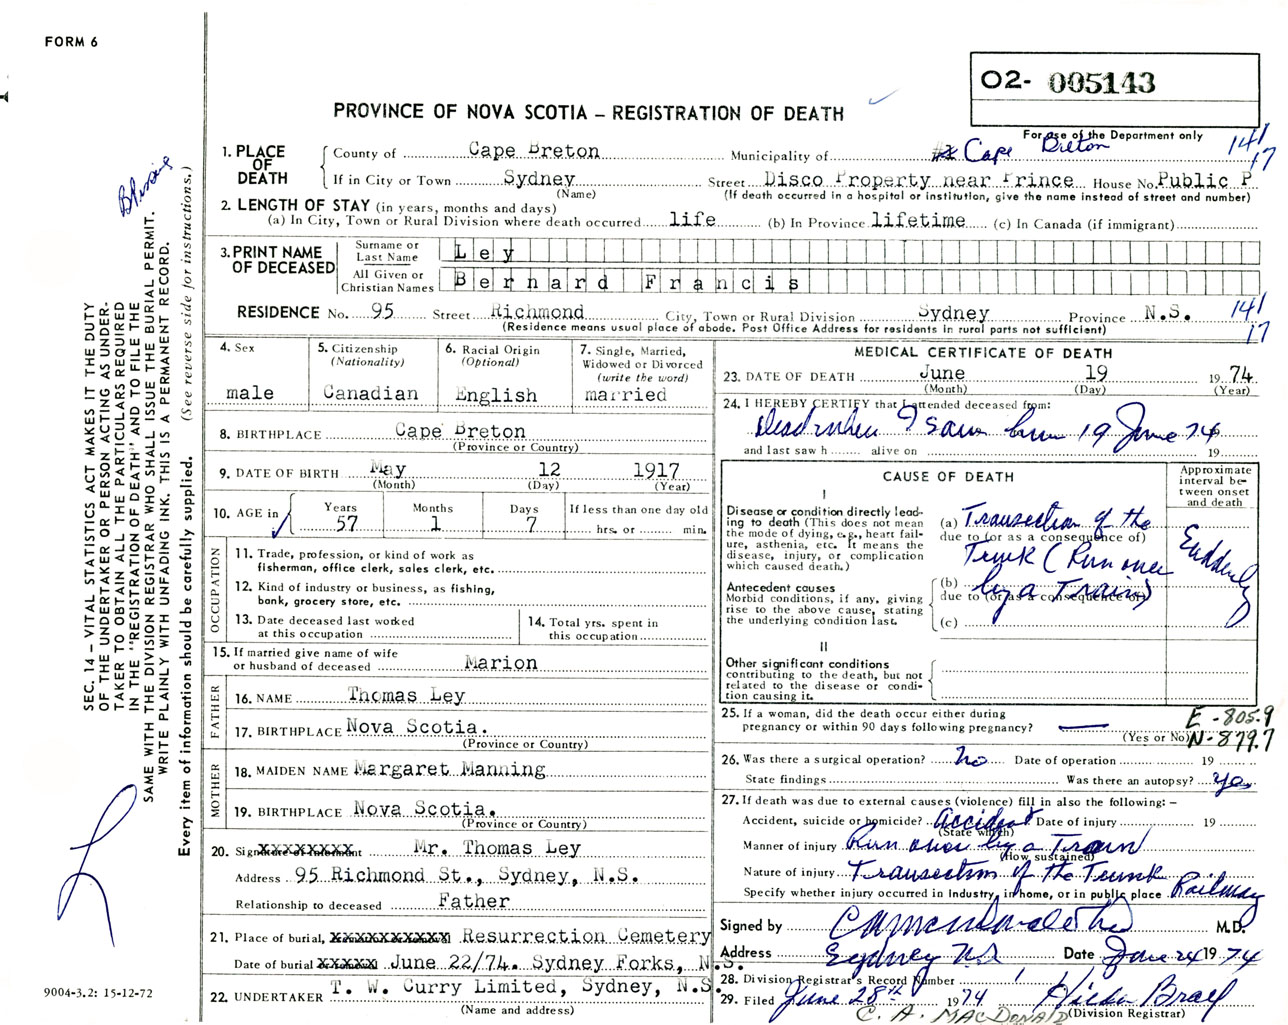 FORM 6
02- 005143
PROVINCE OF NOVA SCOTIA – REGISTRATION OF DEATH
For use of the Department only
1. PLACE OF DEATH
County of Cape Breton Municipality of Cape Breton 141/17
If in City or Town Sydney Street Disco Property near Prince House No. Public P
(Name) (If death occurred in a hospital or institution, give the name instead of street and number)
2. LENGTH OF STAY (in years, months and days)
(a) In City, Town or Rural Division where death occurred life (b) In Province lifetime (c) In Canada (if immigrant)
3. PRINT NAME OF DECEASED
Surname or Last Name Ley
All Given or Christian Names Bernard Francis
RESIDENCE No. 95 Street Richmond City, Town or Rural Division Sydney Province N.S. 141/17
(Residence means usual place of abode. Post Office Address for residents in rural parts not sufficient)
4. Sex male
5. Citizenship (Nationality) Canadian
6. Racial Origin (Optional) English
7. Single, Married, Widowed or Divorced (write the word) married
8. BIRTHPLACE Cape Breton
(Province or County)
9. DATE OF BIRTH May 12 1917
(Month) (Day) (Year)
10. AGE in Years 57 Months 1 Days 7 If less than one day old hrs. or min.
OCCUPATION
11. Trade, profession, or kind of work as fisherman, office clerk, sales clerk, etc.
12. Kind of industry or business, as fishing, bank, grocery store, etc.
13. Date deceased last worked at this occupation
14. Total yrs. spent in this occupation
15. If married give name of wife or husband of deceased Marion
FATHER
16. NAME Thomas Ley
17. BIRTHPLACE Nova Scotia.
(Province or Country)
MOTHER
18. MAIDEN NAME Margaret Manning
19. BIRTHPLACE Nova Scotia.
(Province or Country)
20. Signature of Informant Mr. Thomas Ley
Address 95 Richmond St., Sydney, N.S.
Relationship to deceased Father
21. Place of burial, Resurrection Cemetery
Date of burial June 22/74. Sydney Forks, N.S.
22. UNDERTAKER T. W. Curry Limited, Sydney, N.S.
(Name and address)
MEDICAL CERTIFICATE OF DEATH
23. DATE OF DEATH June 19 1974
(Month) (Day) (Year)
24. I HEREBY CERTIFY that I attended deceased from:
Dead when I saw him 19 June 74
and last saw h alive on 19
CAUSE OF DEATH
Approximate interval between onset and death
I
Disease or condition directly leading to death (This does not mean the mode of dying, e.g., heart failure, asthenia, etc. It means the disease, injury, or complication which caused death.)
(a) Transection of the
due to (or as a consequence of)
Trunk (Run over
Suddenly
Antecedent causes
Morbid conditions, if any, giving rise to the above cause, stating the underlying condition last.
(b) by a Train)
due to (or as a consequence of)
(c)
II
Other significant conditions contributing to the death, but not related to the disease or condition causing it.
25. If a woman, did the death occur either during pregnancy or within 90 days following pregnancy? —
(Yes or No)
E-805.9
N-879.7
26. Was there a surgical operation? No Date of operation 19
State findings Was there an autopsy? Yes
27. If death was due to external causes (violence) fill in also the following: –
Accident, suicide or homicide? Accident Date of injury 19
(State which)
Manner of injury Run over by a Train
(How sustained)
Nature of injury Transection of the Trunk
Specify whether injury occurred in Industry, in home, or in public place Railway
Signed by M.D.
Address Sydney NS Date June 24 1974
28. Division Registrar's Record Number 1
29. Filed June 28th 1974
(Division Registrar)
C. A. MACDONALD
SEC. 14 – VITAL STATISTICS ACT MAKES IT THE DUTY
OF THE UNDERTAKER OR PERSON ACTING AS UNDER-
TAKER TO OBTAIN ALL THE PARTICULARS REQUIRED
IN THE "REGISTRATION OF DEATH" AND TO FILE THE
SAME WITH THE DIVISION REGISTRAR WHO SHALL ISSUE THE BURIAL PERMIT.
WRITE PLAINLY WITH UNFADING INK. THIS IS A PERMANENT RECORD.
Every item of information should be carefully supplied. (See reverse side for instructions.)
9004-3.2: 15-12-72